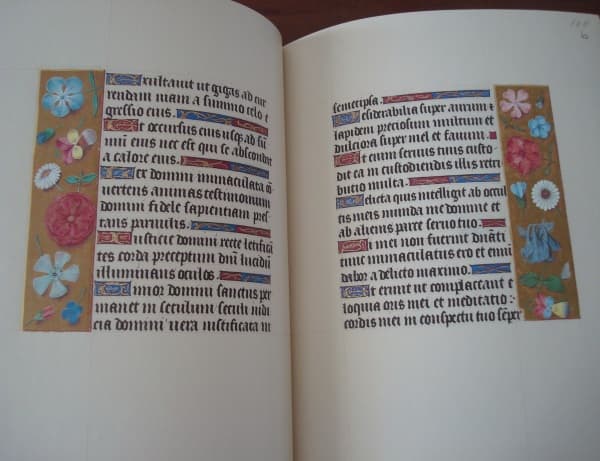 Exultauit ut gigas ad cur
rendam uiam a summo celo e
gressio eius.
Et occursus eius usq; ad sum̄
mū eius nec est qui se abscondit
a calore eius.
Lex domini immaculata cō
uertens animas testimonium
domini fidele sapientiam pres
tans paruulis.
Iusticie domini recte letificā
tes corda preceptum dn̄i lucidū
illuminans oculos.
Timor domini sanctus per
manet in seculum seculi iudi
cia domini uera iustificata in
semetipsa.
Desiderabilia super aurum et
lapidem preciosum multum et
dulciora super mel et fauum.
Et enim seruus tuus custo
dit ea in custodiendis illis retri
butio multa.
Delicta quis intelligit ab occul
tis meis munda me domine et
ab alienis parce seruo tuo.
Si mei non fuerint dn̄ati
tunc immaculatus ero et emū
dabor a delicto maximo.
Et erunt ut complaceant e
loquia oris mei et meditatio
cordis mei in conspectu tuo sēper